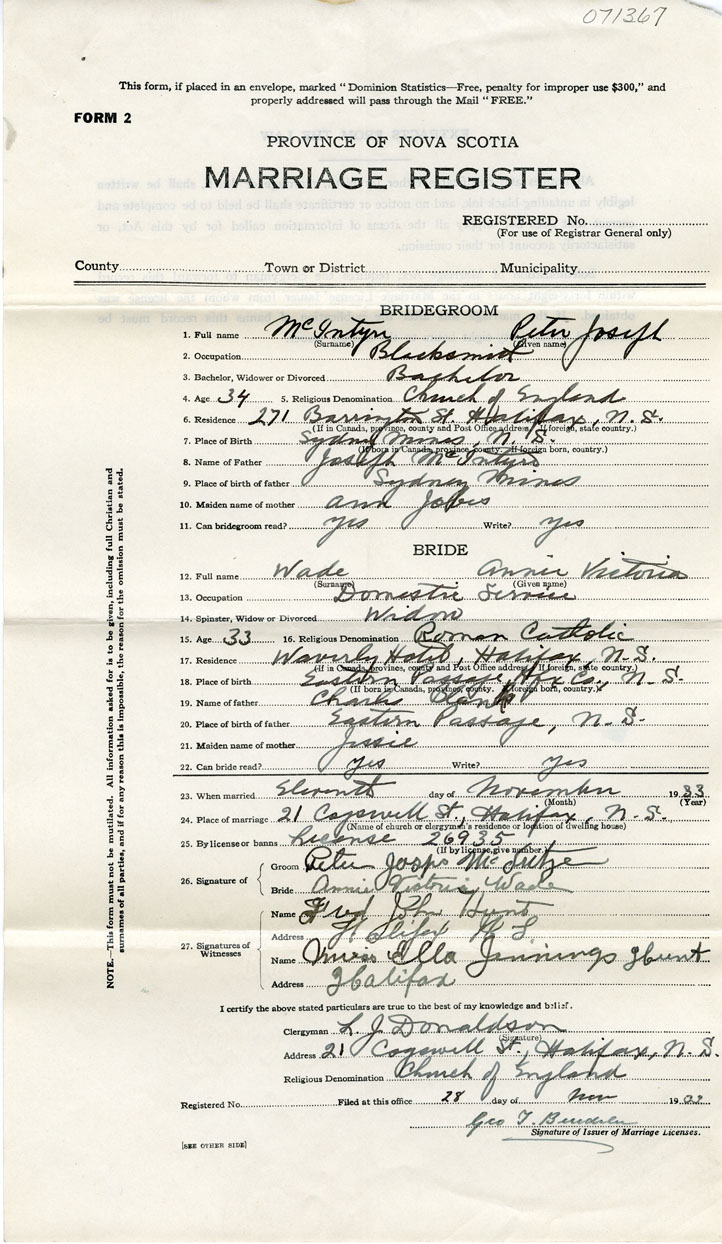 071367
This form, if placed in an envelope, marked "Dominion Statistics—Free, penalty for improper use $300," and
properly addressed will pass through the Mail "FREE."
FORM 2
PROVINCE OF NOVA SCOTIA
MARRIAGE REGISTER
REGISTERED No.
(For use of Registrar General only)
County Town or District Municipality
BRIDEGROOM
1. Full name McIntyre Peter Joseph
(Surname) (Given name)
2. Occupation Blacksmith
3. Bachelor, Widower or Divorced Bachelor
4. Age 34 5. Religious Denomination Church of England
6. Residence 271 Barrington St. Halifax, N.S.
(If in Canada, province, county and Post Office address. If foreign, state country.)
7. Place of Birth Sydney Mines, N.S.
(If born in Canada, province, county. If foreign born, country.)
8. Name of Father Joseph McIntyre
9. Place of birth of father Sydney Mines
10. Maiden name of mother Ann
11. Can bridegroom read? Yes Write? Yes
BRIDE
12. Full name Wade Annie Victoria
(Surname) (Given name)
13. Occupation Domestic Service
14. Spinster, Widow or Divorced Widow
15. Age 33 16. Religious Denomination Roman Catholic
17. Residence Waverly Hotel, Halifax, N.S.
(If in Canada, province, county and Post Office address. If foreign, state country.)
18. Place of birth Eastern Passage, Hfx Co., N.S.
(If born in Canada, province, county. If foreign born, country.)
19. Name of father Charles
20. Place of birth of father Eastern Passage, N.S.
21. Maiden name of mother Jessie
22. Can bride read? Yes Write? Yes
23. When married Eleventh day of November 1933
(Month) (Year)
24. Place of marriage 21 Cogswell St., Halifax, N.S.
(Name of church or clergymen's residence or location of dwelling house)
25. By license or banns License 26935
(If by license, give number.)
26. Signature of Groom Peter McIntyre
Bride Annie Victoria Wade
27. Signatures of Witnesses
Name Fred John Hunt
Address Halifax N S
Name Ella Jennings Hunt
Address Halifax
I certify the above stated particulars are true to the best of my knowledge and belief.
Clergyman L. J. Donaldson
(Signature)
Address 21 Cogswell St., Halifax, N.S.
Religious Denomination Church of England
Registered No. Filed at this office 28 day of Nov 1933
Geo T.
Signature of Issuer of Marriage Licenses.
[SEE OTHER SIDE]
NOTE.—This form must not be mutilated. All information asked for is to be given, including full Christian and
surnames of all parties, and if for any reason this is impossible, the reason for the omission must be stated.